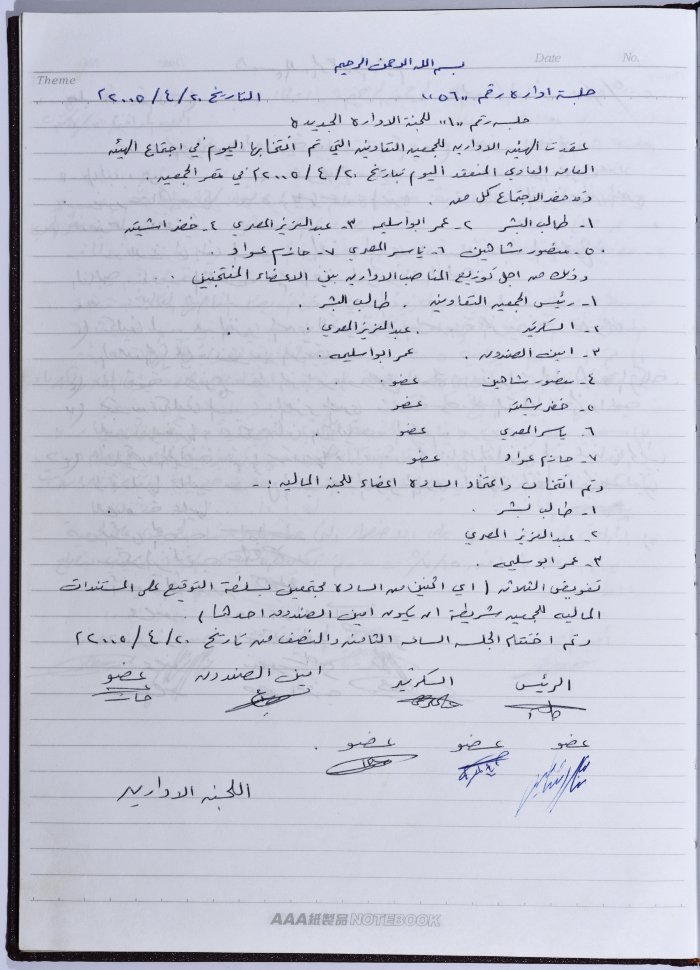 Theme
Date
No.
بسم الله الرحمن الرحيم
جلسة ادارة رقم "٥٦" التاريخ ٢٠/٤/٢٠٠٥م
جلسه رقم "١" للجنة الادارة الجديدة
عقدت الهيئه الاداريه للجمعيه التعاونيه التي تم انتخابها اليوم في اجتماع الهيئه
العامه العادي المنعقد اليوم بتاريخ ٢٠/٤/٢٠٠٥م في مقر الجمعيه.
وقد حضر الاجتماع كل من.
١- طالب البشر ٢- عمر ابو اسليمه ٣- عبد العزيز المصري ٤- خضر اشيته
٥- منصور شاهين ٦- ياسر المصري ٧- حازم عواد.
وذلك من اجل توزيع المناصب الاداريه بين الاعضاء المنتخبين.
١- رئيس الجمعيه التعاونيه. طالب البشر.
٢- السكرتير. عبد العزيز المصري.
٣- امين الصندوق. عمر ابو اسليمه.
٤- منصور شاهين عضو.
٥- خضر شيته عضو
٦- ياسر المصري عضو.
٧- حازم عواد عضو
وتم انتخاب واعتماد السادة اعضاء للجنه الماليه :-
١- طالب بشر.
٢- عبد العزيز المصري
٣- عمر ابو سليمه.
تفويض الثلاثه (اي اثنين من الساده مجتمعين بسلطة التوقيع على المستندات
الماليه للجمعيه شريطة ان يكون امين الصندوق احدهما).
وتم اختتام الجلسه الساعه الثامنه والنصف من تاريخ ٢٠/٤/٢٠٠٥م
الرئيس السكرتير امين الصندوق عضو
عضو عضو عضو.
اللجنه الاداريه
AAA紙製品NOTEBOOK